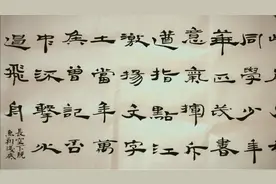 同學少年
華正茂書
意氣揮斥
遒指點江
激揚文字
土當年萬
侯曾記否
中流擊水
遏飛舟
長空下脫
魚翔淺底